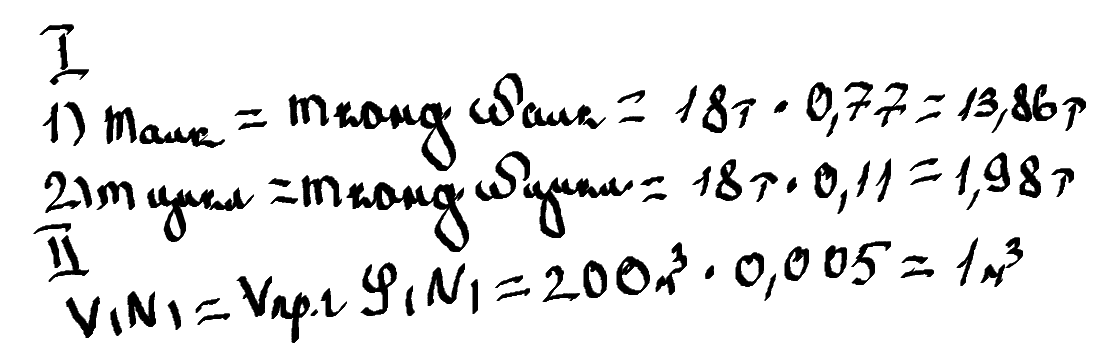 I
1) mалк = mконд ωалк = 18т · 0,77 = 13,86т
2) mцикл = mконд ωцикл = 18т · 0,11 = 1,98т
II
V₁N₁ = Vпр.г φ₁N₁ = 200м³ · 0,005 = 1м³